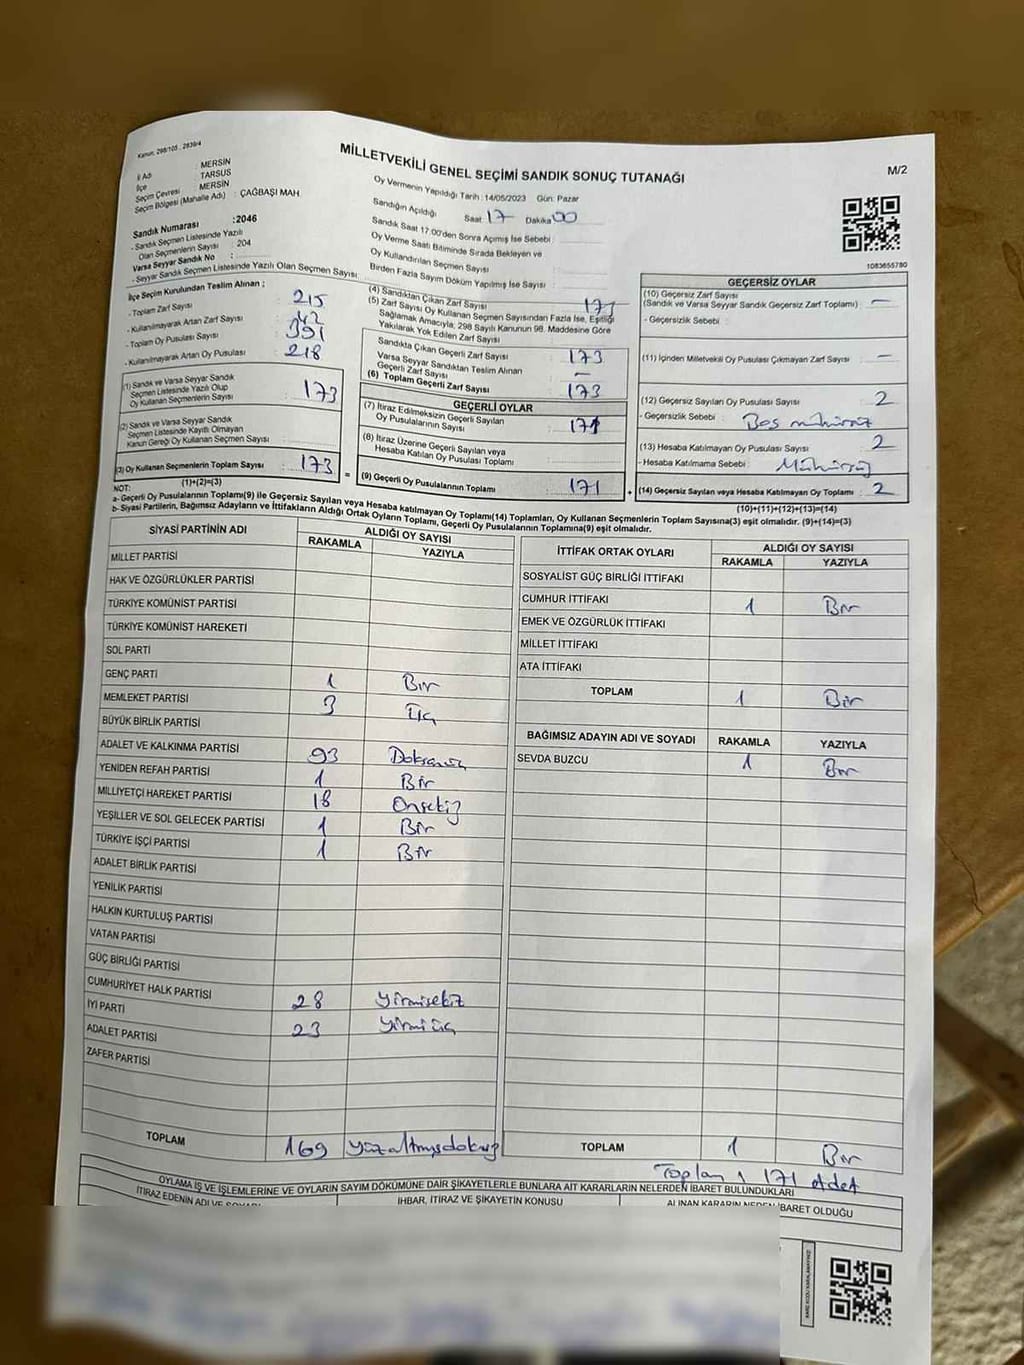 Kanun: 298/105 , 2839/4
MİLLETVEKİLİ GENEL SEÇİMİ SANDIK SONUÇ TUTANAĞI
M/2
İl Adı : MERSİN
İlçe : TARSUS
Seçim Çevresi : MERSİN
Seçim Bölgesi (Mahalle Adı) : ÇAĞBAŞI MAH.
Sandık Numarası :2046
- Sandık Seçmen Listesinde Yazılı
Olan Seçmenlerin Sayısı : 204
Varsa Seyyar Sandık No :
- Seyyar Sandık Seçmen Listesinde Yazılı Olan Seçmen Sayısı:
Oy Vermenin Yapıldığı Tarih : 14/05/2023 Gün: Pazar
Sandığın Açıldığı Saat 17 Dakika 00
Sandık Saat 17:00'den Sonra Açımış İse Sebebi :
Oy Verme Saati Bitiminde Sırada Bekleyen ve
Oy Kullandırılan Seçmen Sayısı
Birden Fazla Sayım Döküm Yapılmış İse Sayısı :
1083655780
İlçe Seçim Kurulundan Teslim Alınan ;
- Toplam Zarf Sayısı : 215
- Kullanılmayarak Artan Zarf Sayısı : 42
- Toplam Oy Pusulası Sayısı : 391
- Kullanılmayarak Artan Oy Pusulası : 218
(1) Sandık ve Varsa Seyyar Sandık
Seçmen Listesinde Yazılı Olup
Oy Kullanan Seçmenlerin Sayısı : 173
(2) Sandık ve Varsa Seyyar Sandık
Seçmen Listesinde Kayıtlı Olmayan
Kanun Gereği Oy Kullanan Seçmen Sayısı :
(3) Oy Kullanan Seçmenlerin Toplam Sayısı : 173
(1)+(2)=(3)
(4) Sandıktan Çıkan Zarf Sayısı : 173
(5) Zarf Sayısı Oy Kullanan Seçmen Sayısından Fazla İse, Eşitliği
Sağlamak Amacıyla; 298 Sayılı Kanunun 98. Maddesine Göre
Yakılarak Yok Edilen Zarf Sayısı
Sandıkta Çıkan Geçerli Zarf Sayısı : 173
Varsa Seyyar Sandıktan Teslim Alınan
Geçerli Zarf Sayısı : –
(6) Toplam Geçerli Zarf Sayısı : 173
GEÇERLİ OYLAR
(7) İtiraz Edilmeksizin Geçerli Sayılan
Oy Pusulalarının Sayısı : 171
(8) İtiraz Üzerine Geçerli Sayılan veya
Hesaba Katılan Oy Pusulası Toplamı :
= (9) Geçerli Oy Pusulalarının Toplamı : 171
GEÇERSİZ OYLAR
(10) Geçersiz Zarf Sayısı
(Sandık ve Varsa Seyyar Sandık Geçersiz Zarf Toplamı) : –
- Geçersizlik Sebebi :
(11) İçinden Milletvekili Oy Pusulası Çıkmayan Zarf Sayısı : –
(12) Geçersiz Sayılan Oy Pusulası Sayısı : 2
- Geçersizlik Sebebi :
(13) Hesaba Katılmayan Oy Pusulası Sayısı : 2
- Hesaba Katılmama Sebebi :
+ (14) Geçersiz Sayılan veya Hesaba Katılmayan Oy Toplamı : 2
(10)+(11)+(12)+(13)=(14)
NOT:
a- Geçerli Oy Pusulalarının Toplamı(9) ile Geçersiz Sayılan veya Hesaba Katılmayan Oy Pusulası Toplamı(14) Toplamları, Oy Kullanan Seçmenlerin Toplam Sayısına(3) eşit olmalıdır. (9)+(14)=(3)
b- Siyasi Partilerin, Bağımsız Adayların ve İttifakların Aldığı Ortak Oyların Toplamı, Geçerli Oy Pusulalarının Toplamına(9) eşit olmalıdır.
SİYASİ PARTİNİN ADI ALDIĞI OY SAYISI
RAKAMLA YAZIYLA
MİLLET PARTİSİ
HAK VE ÖZGÜRLÜKLER PARTİSİ
TÜRKİYE KOMÜNİST PARTİSİ
TÜRKİYE KOMÜNİST HAREKETİ
SOL PARTİ
GENÇ PARTİ 1 Bir
MEMLEKET PARTİSİ 3 Üç
BÜYÜK BİRLİK PARTİSİ
ADALET VE KALKINMA PARTİSİ 93 Doksanüç
YENİDEN REFAH PARTİSİ 1 Bir
MİLLİYETÇİ HAREKET PARTİSİ 18 Onsekiz
YEŞİLLER VE SOL GELECEK PARTİSİ 1 Bir
TÜRKİYE İŞÇİ PARTİSİ 1 Bir
ADALET BİRLİK PARTİSİ
YENİLİK PARTİSİ
HALKIN KURTULUŞ PARTİSİ
VATAN PARTİSİ
GÜÇ BİRLİĞİ PARTİSİ
CUMHURİYET HALK PARTİSİ 28 Yirmisekiz
İYİ PARTİ 23 Yirmiüç
ADALET PARTİSİ
ZAFER PARTİSİ
TOPLAM 169 Yüzaltmışdokuz
İTTİFAK ORTAK OYLARI ALDIĞI OY SAYISI
RAKAMLA YAZIYLA
SOSYALİST GÜÇ BİRLİĞİ İTTİFAKI
CUMHUR İTTİFAKI 1 Bir
EMEK VE ÖZGÜRLÜK İTTİFAKI
MİLLET İTTİFAKI
ATA İTTİFAKI
TOPLAM 1 Bir
BAĞIMSIZ ADAYIN ADI VE SOYADI RAKAMLA YAZIYLA
SEVDA BUZCU 1 Bir
TOPLAM 1 Bir
Toplam : 171 Adet
OYLAMA İŞ VE İŞLEMLERİNE VE OYLARIN SAYIM DÖKÜMÜNE DAİR ŞİKAYETLERLE BUNLARA AİT KARARLARIN NELERDEN İBARET BULUNDUKLARI
İTİRAZ EDENİN ADI VE
İHBAR, İTİRAZ VE ŞİKAYETİN KONUSU
ALINAN KARARIN NEDEN İBARET OLDUĞU
KARE KODU KARALAMAYINIZ!